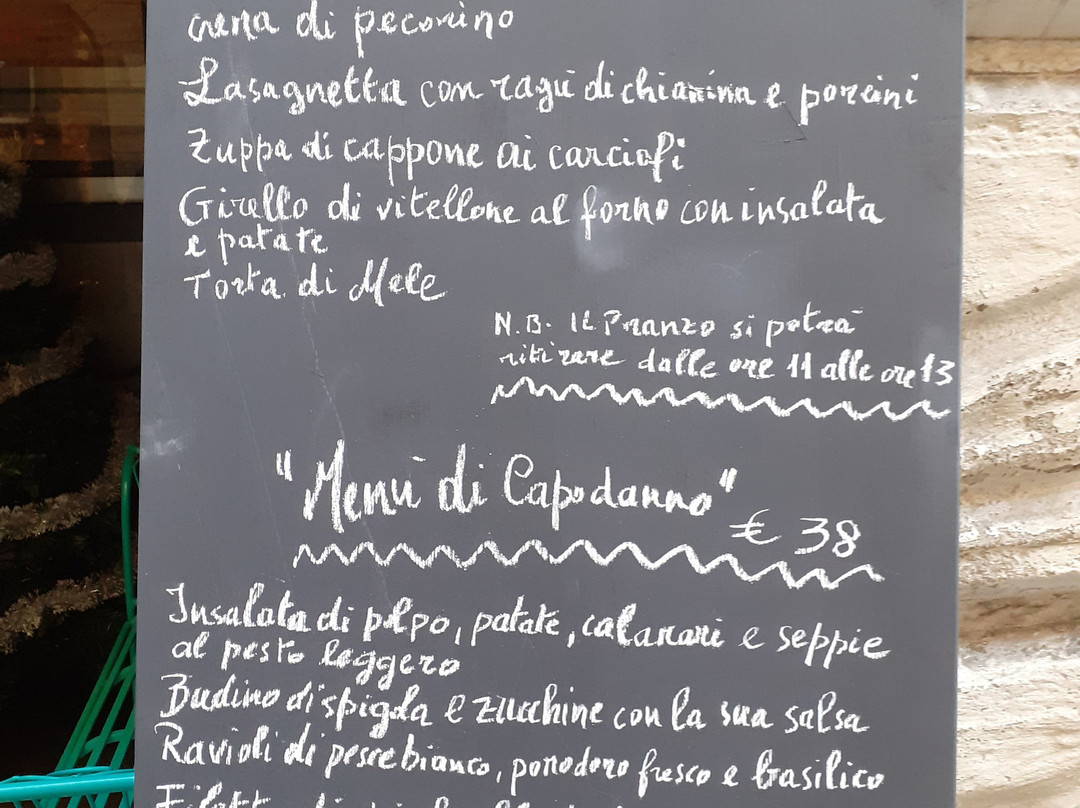 crema di pecorino
Lasagnetta con ragù di chianina e porcini
Zuppa di cappone ai carciofi
Girello di vitellone al forno con insalata
e patate
Torta di Mele
N.B. Il Pranzo si potrà
ritirare dalle ore 11 alle ore 13
"Menù di Capodanno"
€ 38
Insalata di polpo, patate, calamari e seppie
al pesto leggero
Budino di spigola e zucchine con la sua salsa
Ravioli di pesce bianco, pomodoro fresco e basilico